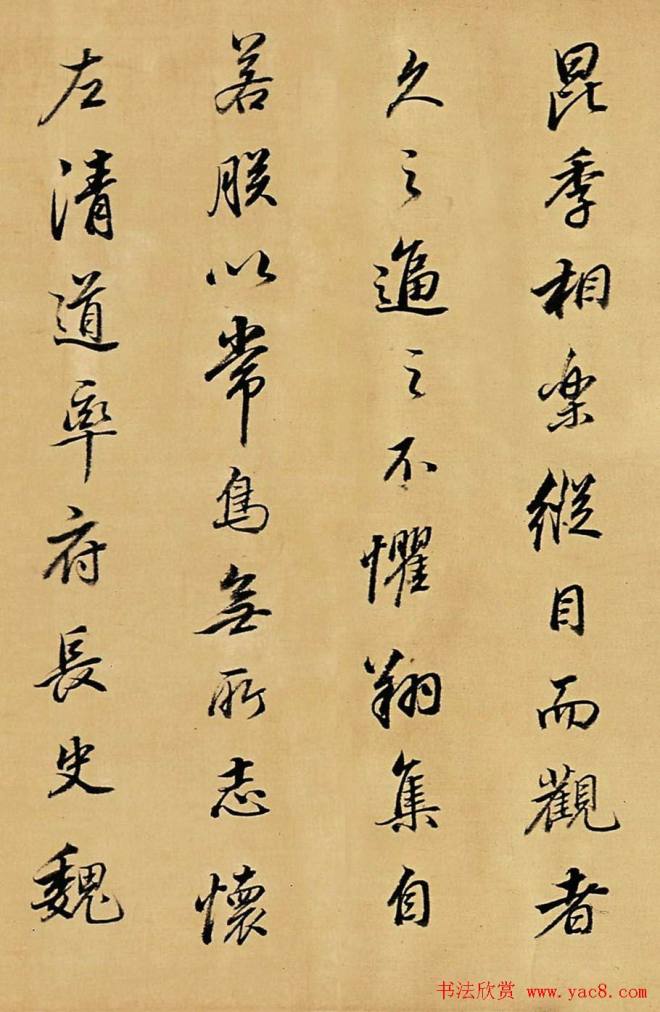 昆季相樂縱目而觀者
久之逼之不懼翔集自
若朕以常鳥無所志懷
左清道率府長史魏
书法欣赏 www.yac8.com